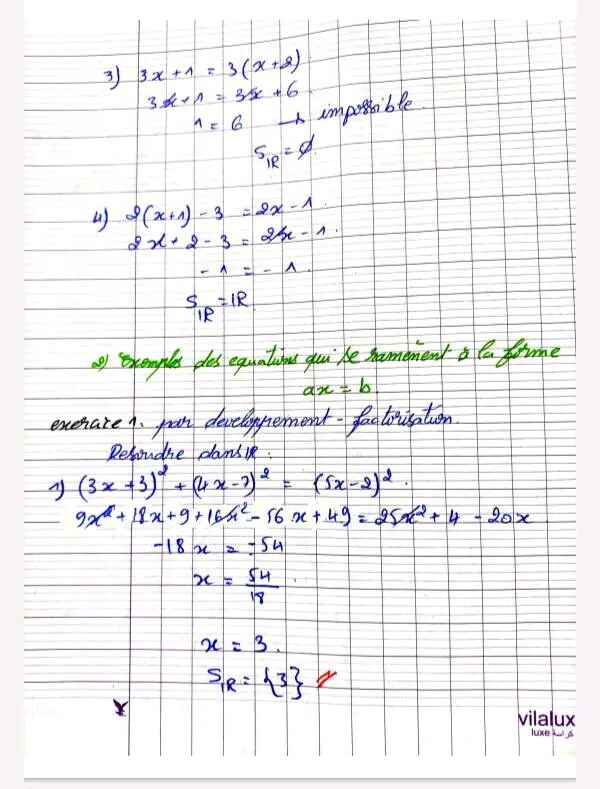 3) 3x + 1 = 3(x+2)
3x + 1 = 3x + 6
1 = 6 → impossible.
S_IR = ∅.
4) 2(x+1) - 3 = 2x - 1.
2x + 2 - 3 = 2x - 1.
- 1 = - 1.
S_IR = IR.
2) Exemples des equations qui se ramènent à la forme
ax = b.
exercice 1. par developpement - factorisation.
Resoudre dans IR.
1) (3x + 3)² + (4x - 7)² = (5x - 2)².
9x² + 18x + 9 + 16x² - 56x + 49 = 25x² + 4 - 20x
-18x = -54
x = 54/18.
x = 3.
S_IR = {3}
vilalux
luxe كراسة